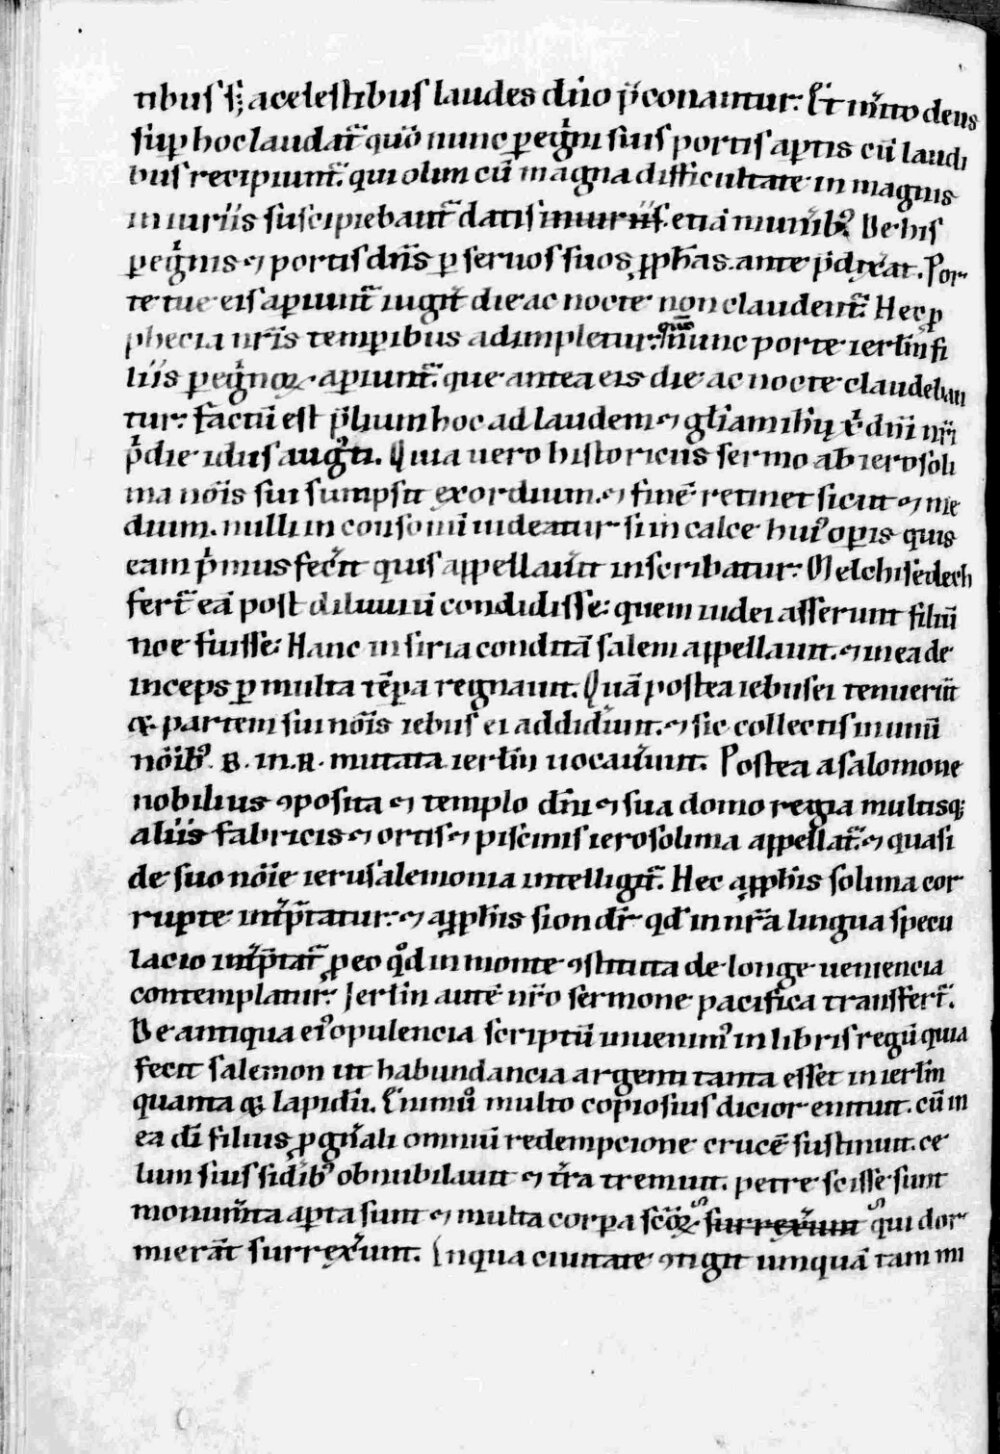 tibus s; a celestibus laudes dño p̃conantur. Et m̃ito deus
sup hoc laudat̃ quõ nunc pegͥni suis portis aptis cũ laudi
bus recipiunt̃. qui olim cũ magna difficultate in magnis
iniuriis suscipiebant̃ datis muriis. etiã munib᷒. De his
pegͥnis ⁊ portis dñs p seruos suos ꝓph̃as. ante p̃dixͬat. Por
te tue eis apiunt̃ iugit̃ die ac nocte non claudent̃. Hec ꝓ
phecia nr̃is tempibus adimpletur. qm̃ nunc porte ierl̃m fi
liis pegͥnoꝝ. apiunt̃. que antea eis die ac nocte claudeban
tur. factũ est p̃lium hoc ad laudem ⁊ gl̃iam ih̃u xͥ dñi nr̃i
pͥdie idus augͧti. Quia uero historicus sermo ab ierosoli
ma nõis sui sumpsit exordium. ⁊ finẽ retinet sicut ⁊ me
dium. nulli inconsonũ uideatur si in calce hui᷒ opis quis
eam pͥmus fec̃it quis appellauit̃ inscribatur. Melchisedech
fert̃ eã post diluuiũ condidisse: quem iudei asserunt filiũ
noe fuisse. Hanc in siria conditã salem appellauit. ⁊ in ea de
inceps p multa tẽpa regnauit. Quã postea iebusei tenuerũt
qꝫ partem sui nõis iebus ei addidͬunt. ⁊ sic collectis in unũ
nõib᷒. B. in. R. mutata ierl̃m uocauͬunt. Postea a salomone
nobilius ꝯposita ⁊ templo dñi ⁊ sua domo regia multisqꝫ
aliis fabricis ⁊ ortis ⁊ piscinis ierosolima appellat̃. ⁊ quasi
de suo nõie ierusalemonia intelligit̃. Hec a ꝓph̃is solima cor
rupte int̃p̃tatur. ⁊ a ꝓph̃is sion dr̃ qd̃ in nr̃a lingua specu
lacio int̃p̃tat̃ ꝓ eo qͦd in monte ꝯstituta de longe ueniencia
contemplatur. Jerl̃m autẽ nr̃o sermone pacifica transfert̃.
De antiqua ei᷒ opulencia scriptũ inuenim᷒ in libris regũ quia
fecit salemon ut habundancia argenti tanta esset in ierl̃m
quanta qꝫ lapidũ. Enimũ multo copiosius dicior enituit. cũ in
ea dĩ filius ꝓ gñali omniũ redempcione crucẽ sustinuit. ce
lum suis sidͬib᷒ obnubilauit ⁊ tͬra tremuit. petre scisse sunt
monum̃ta apta sunt ⁊ multa corpa sc̃oꝝ surrexͬunt qui dor
mierãt surrexͬunt. In qua ciuitate ꝯtigit umquã tam mi